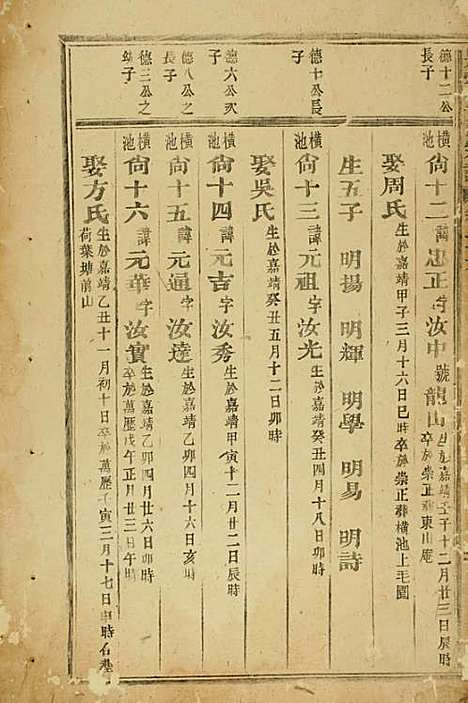 德十二公長子
橫池尙十二諱忠正字汝中號龍山生於嘉靖壬子十二月廿三日辰時卒於崇正葬東山庵
娶周氏生於嘉靖甲子三月十六日巳時卒於崇正葬橫池上毛園
生五子 明揚 明輝 明學 明易 明詩
德十公長子
橫池尙十三諱元祖字汝光生於嘉靖癸丑四月十八日卯時
娶吳氏生於嘉靖癸丑五月十二日卯時
德六公次子
橫池尙十四諱元吉字汝秀生於嘉靖甲寅十二月廿二日辰時
德八公之長子
橫池尙十五諱元逼字汝達生於嘉靖乙卯四月十六日亥時
德三公之子
橫池尙十六諱元華字汝實生於嘉靖乙卯四月廿六日卯時卒於萬歷戊午正月廿三日午時
娶方氏生於嘉靖乙丑十一月初十日卒於萬歷壬寅三月十七日申時石塟荷葉塘前山